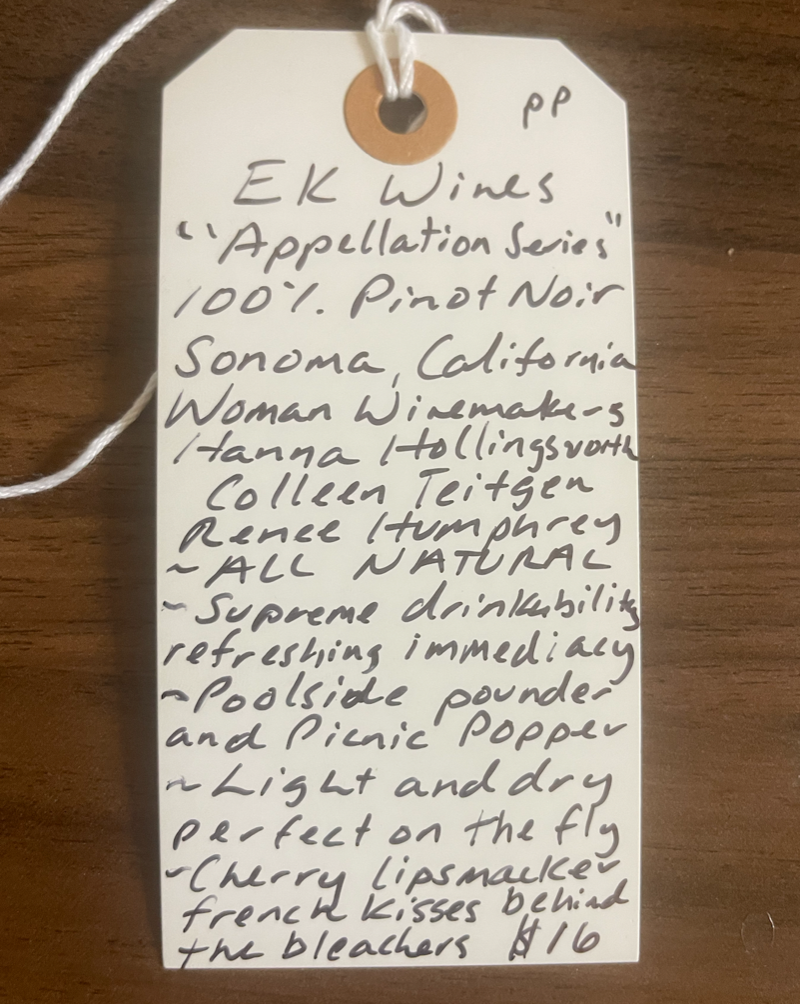 pp
EK Wines
"Appellation Series"
100% Pinot Noir
Sonoma, California
Woman Winemakers
Hanna Hollingsworth
Colleen Teitgen
Renee Humphrey
~ALL NATURAL
~Supreme drinkability
refreshing immediacy
~Poolside pounder
and Picnic Popper
~Light and dry
perfect on the fly
~Cherry lipsmacker
french kisses behind
the bleachers $16